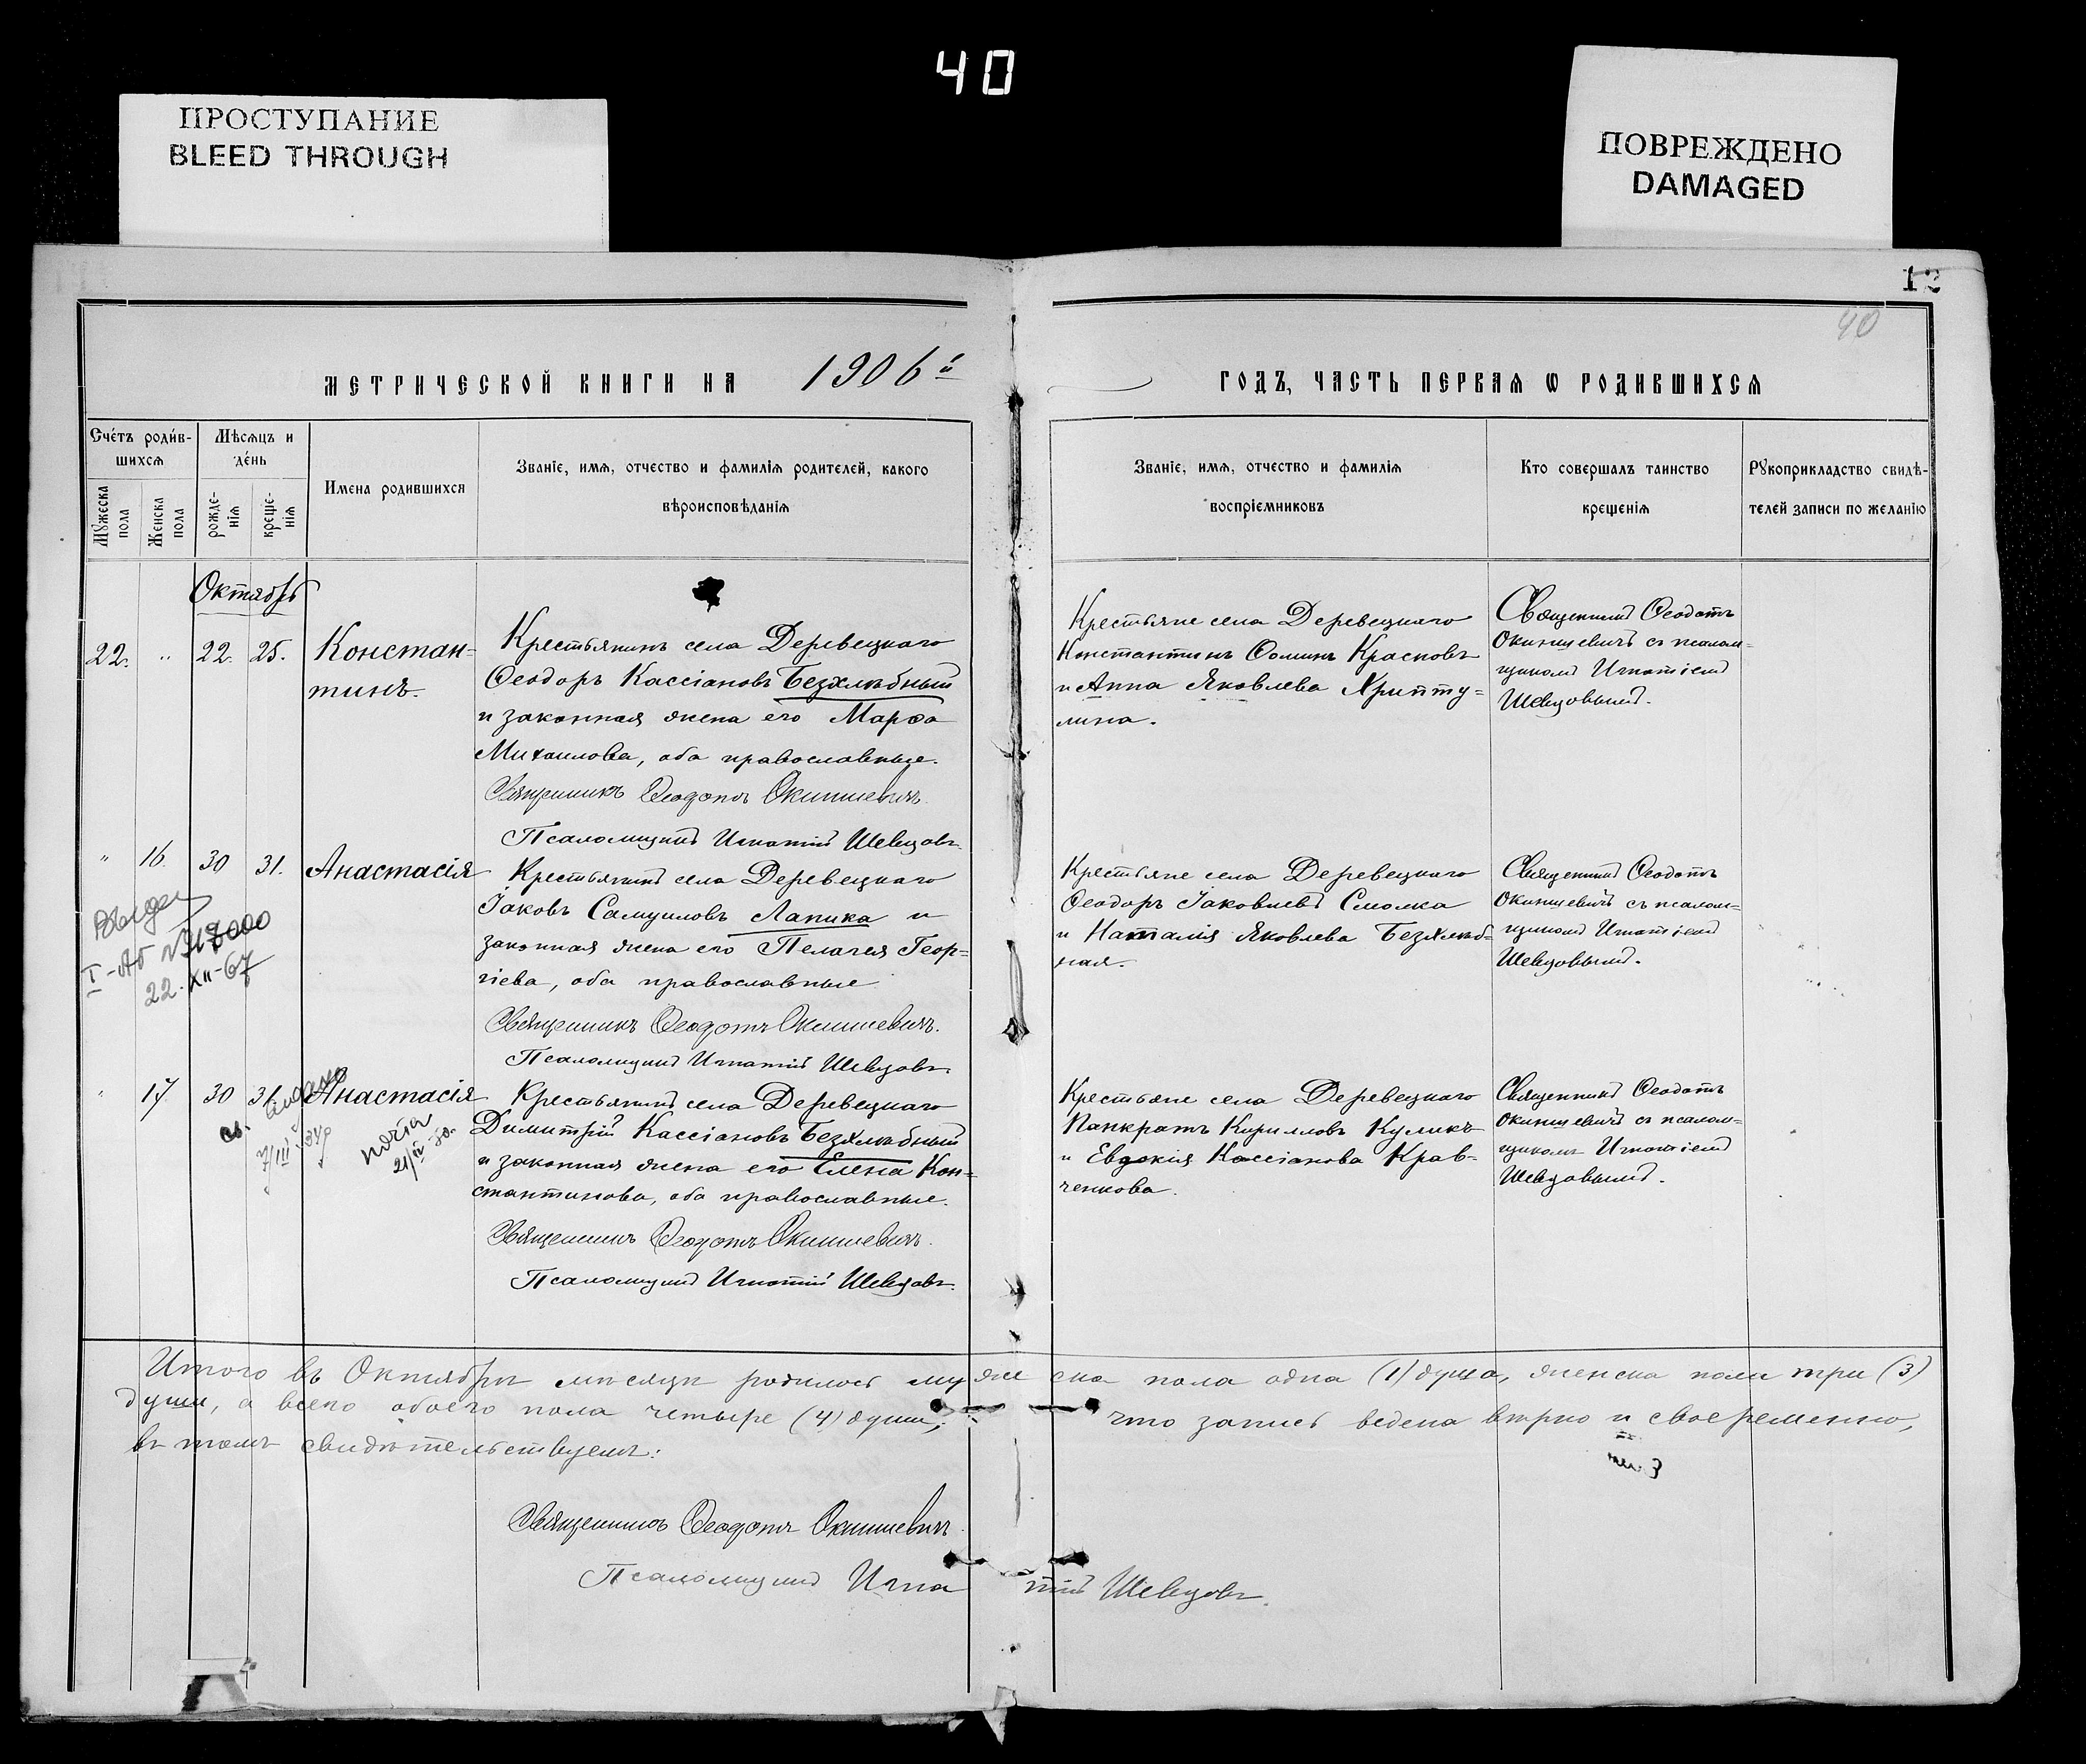 40
ПРОСТУПАНИЕ
BLEED THROUGH
ПОВРЕЖДЕНО
DAMAGED
12
40
МЕТРИЧЕСКОЙ КНИГИ НА 1906й ГОДЪ, ЧАСТЬ ПЕРВАѦ Ѡ РОДИВШИХСѦ
Сче́тъ роди́в-
шихсѧ
Мѣсѧцъ и
де́нь
Мꙋжеска
пола
Женска
пола
рожде-
нїѧ
креще-
нїѧ
Имена родившихсѧ
Званїе, имѧ, отчество и фамилїѧ родителей, какого
вѣроисповѣданїѧ
Званїе, имѧ, отчество и фамилїѧ
воспрїемниковъ
Кто совершалъ таинство
крещенїѧ
Рꙋкоприкладство свидѣ-
телей записи по желанїю
Октябрь
22. " 22. 25. Констан-
тинъ.
Крестьянинъ села Деревецкаго
Ѳеодоръ Кассіановъ Безхлѣбный
и законная жена его Марѳа
Михаилова, оба православные.
Священникъ Ѳеодотъ Окиншевичъ.
Псаломщикъ Игнатій Шевцовъ.
Крестьяне села Деревецкаго
Константинъ Ѳоминъ Красновъ
и Анна Яковлева Хрипту-
лина.
Священникъ Ѳеодотъ
Окиншевичъ съ псалом-
щикомъ Игнатіемъ
Шевцовымъ.
" 16. 30 31. Анастасія
I-АБ № 17000
22.XII-67
Крестьянинъ села Деревецкаго
Іаковъ Самуиловъ Лапика и
законная жена его Пелагея Геор-
гіева, оба православные
Священникъ Ѳеодотъ Окиншевичъ.
Псаломщикъ Игнатій Шевцовъ.
Крестьяне села Деревецкаго
Ѳеодоръ Іаковлевъ Смолка
и Наталія Яковлева Безхлѣб-
ная.
Священникъ Ѳеодотъ
Окиншевичъ съ псалом-
щикомъ Игнатіемъ
Шевцовымъ.
" 17 30 31. Анастасія
Крестьянинъ села Деревецкаго
Димитрій Кассіановъ Безхлѣбный
и законная жена его Елена Кон-
стантинова, оба православные.
Священникъ Ѳеодотъ Окиншевичъ.
Псаломщикъ Игнатій Шевцовъ.
Крестьяне села Деревецкаго
Панкратъ Кирилловъ Куликъ
и Евдокія Кассіанова Крав-
ченкова.
Священникъ Ѳеодотъ
Окиншевичъ съ псалом-
щикомъ Игнатіемъ
Шевцовымъ.
Итого въ Октябрѣ мѣсяцѣ родилось мужеска пола одна (1) душа, женска пола три (3)
души, а всего обоего пола четыре (4) души; что запись ведена вѣрно и своеременно,
въ томъ свидѣтельствуемъ:
Священникъ Ѳеодотъ Окиншевичъ
Псаломщикъ Игнатій Шевцовъ.